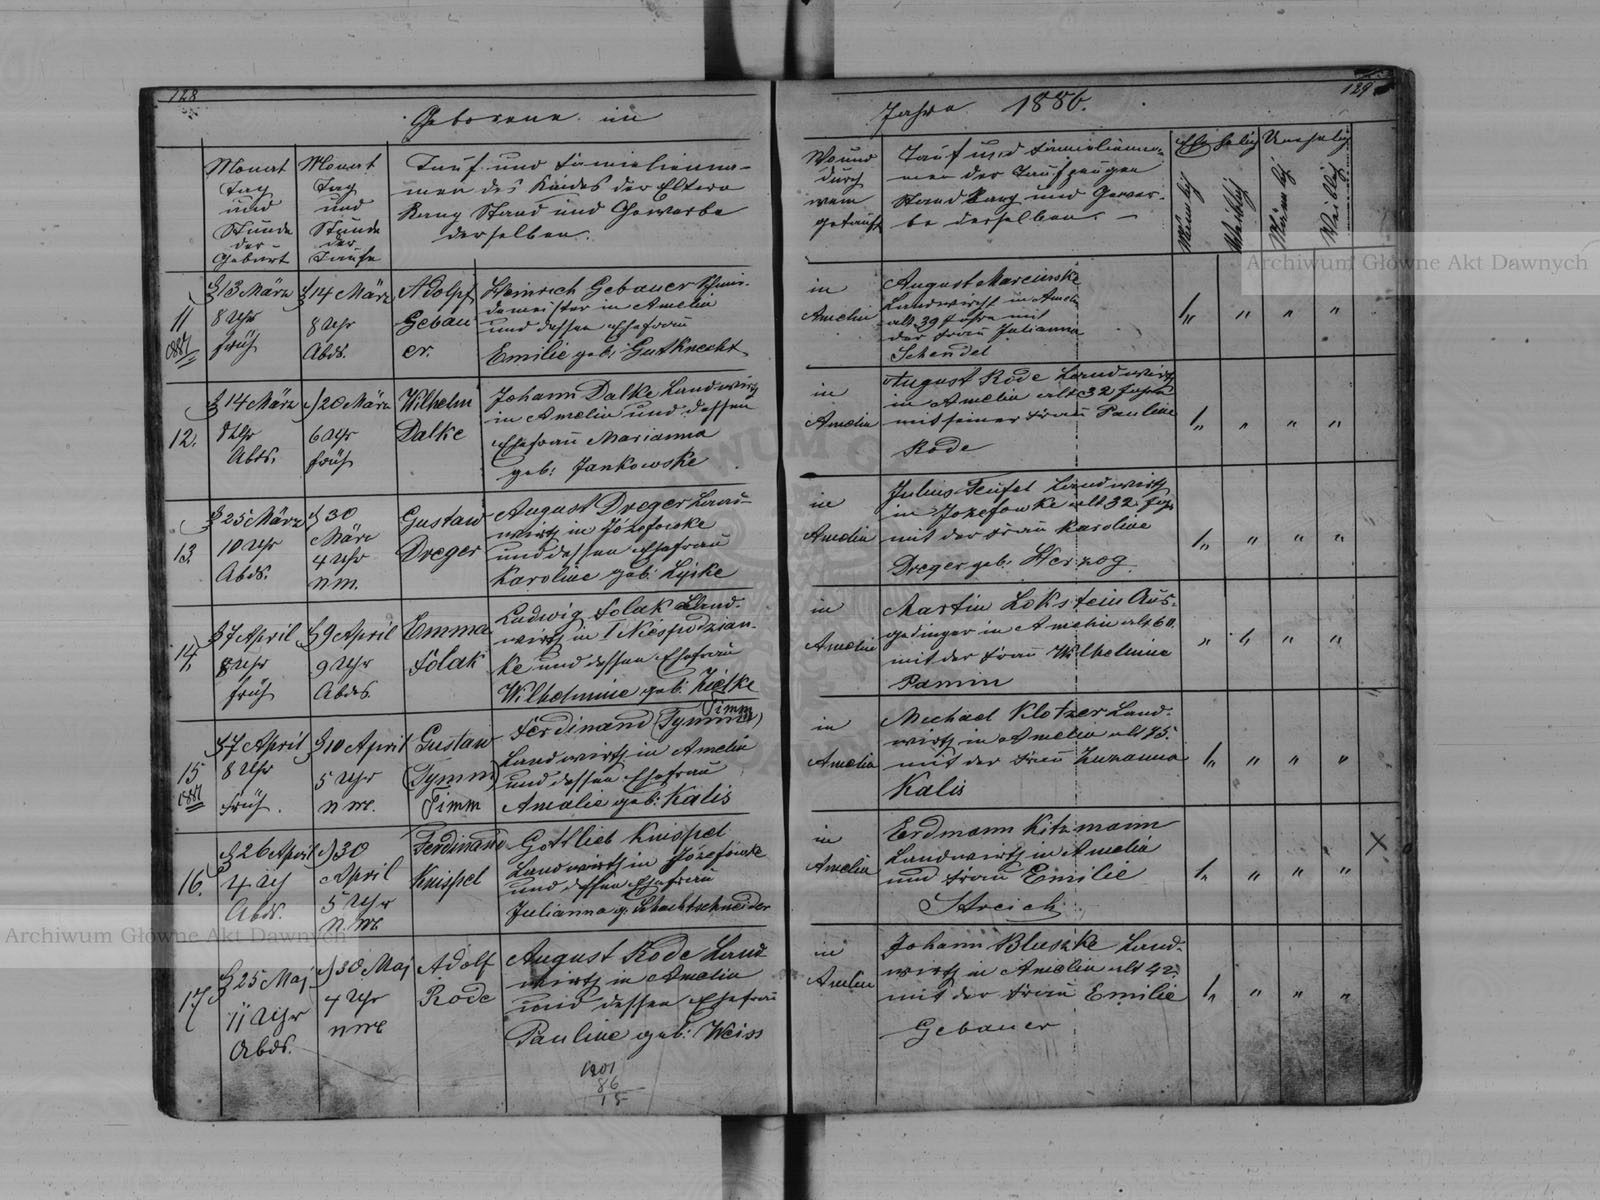 128
Geborene im
Monat
Tag
und
Stunde
der
Geburt
Monat
Tag
und
Stunde
der
Taufe
Tauf und Familienna-
men des Kindes der Eltern
Rang Stand und Gewerbe
derselben.
11
13 März
8 Uhr
früh
14 März
8 Uhr
Abds.
Adolpf
Gebau
er.
Heinrich Gebauer
in Amelin
und dessen Ehefrau
Emilie geb: Gutknecht
12.
14 März
Uhr
Abds.
20 März
6 Uhr
früh
Wilhelm
Dalke
Johann Dalke Landwirth
in Amelin und dessen
Ehefrau Marianna
geb: Jankowske
13.
25 März
10 Uhr
Abds.
30
März
4 Uhr
n m.
Gustaw
Dreger
August Dreger Land-
wirth in Józefowke
und dessen Ehefrau
Karoline geb: Lyske
14.
7 April
8 Uhr
früh
9 April
9 Uhr
Abds
Emma
Folak
Ludwig Folak Land-
wirth in Niespodzian-
ke und dessen Ehefrau
Wilhelmine geb: Zielke
15
7 April
8 Uhr
früh.
10 April
5 Uhr
n m.
Gustaw
(Tymm)
Timm
Timm
Ferdinand (Tymm)
Landwirth in Amelin
und dessen Ehefrau
Amalie geb: Kalis
16.
26 April
4 Uhr
Abds.
30
April
5 Uhr
n. m.
Ferdinand
Knispel
Gottlieb Knispel
Landwirth in Józefowke
und dessen Ehefrau
Julianna g. Schachtschneider
17
25 Maj
11 Uhr
Abds.
30 Maj
4 Uhr
n m.
Adolf
Rode
August Rode Land
wirth in Amelin
und dessen Ehefrau
Pauline geb: Weiss
1901
86
15
129
Jahre 1886.
Wo und
durch
wem
getauft
Tauf und Familienna-
men der Taufzeugen
Stand Rang und Gewer-
be derselben.
Ehelig
Unehelig
Männlig
Weiblig
Männlig
Weiblig
in
Amelin
August Marcinske
Landwirth in Amelin
alt 39 Jahre mit
der Frau Julianna
Schendel
1 " " " "
in
Amelin
August Rode Landwirth
in Amelin alt 32 Jahre
mit seiner Frau Pauline
Rode
1 " " " "
in
Amelin
Julius Teufel Landwirth
in Jozefowke alt 32 Jahr
mit der Frau Karoline
Dreger geb: Herzog
1 " " " "
in
Amelin
Martin Lokstein Aus-
gedinger in Amelin alt 60.
mit der Frau Wilhelmine
Pamin
" 1 " "
in
Amelin
Michael Klotzer Land-
wirth in Amelin alt 45.
mit der Frau Zuzanna
Kalis
1 " " " "
in
Amelin
Erdmann Kitzmann
Landwirth in Amelin
und Frau Emilie
Streich
1 " " " "
X
in
Amelin
Johann Bluszke Land-
wirth in Amelin alt 42.
mit der Frau Emilie
Gebauer
1 " " " "
Archiwum Główne Akt Dawnych
Archiwum Główne Akt Dawnych